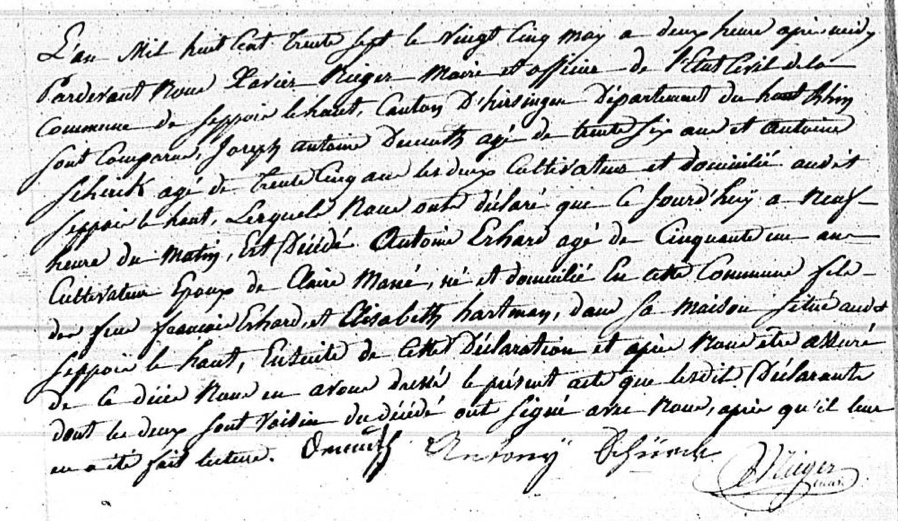 L'an Mil huit Cent trente sept le Vingt Cinq may a deux heure après midy
Pardevant Nous Xavier Rieger Maire et officier de l'Etat Civil de la
Commune de Seppois le haut, Canton D'hirsingen Département du haut Rhin
sont Comparus, Joseph antoine agé de trente six ans et Antoine
Schenck agé de trente Cinq ans les deux Cultivateurs et domicilié audit
Seppois le haut, Lesquels Nous ont déclaré que Ce Jourd'huy a Neuf
heure du Matin, Est Décédé Antoine Erhard agé de Cinquante un ans
Cultivateur Epoux de Claire Marie, né et domicilié En cette Commune fils
de feu françois Erhard, et Elisabeth hartman, dans sa maison situé audit
Seppois le haut, Ensuite de Cette Déclaration et après Nous être assuré
de Ce décès Nous en avons dressé le présent acte que lesdit Déclarants
dont les deux sont Voisin du décédé ont signé avec Nous, après qu'il leur
en a été fait lecture. Antonÿ Rieger